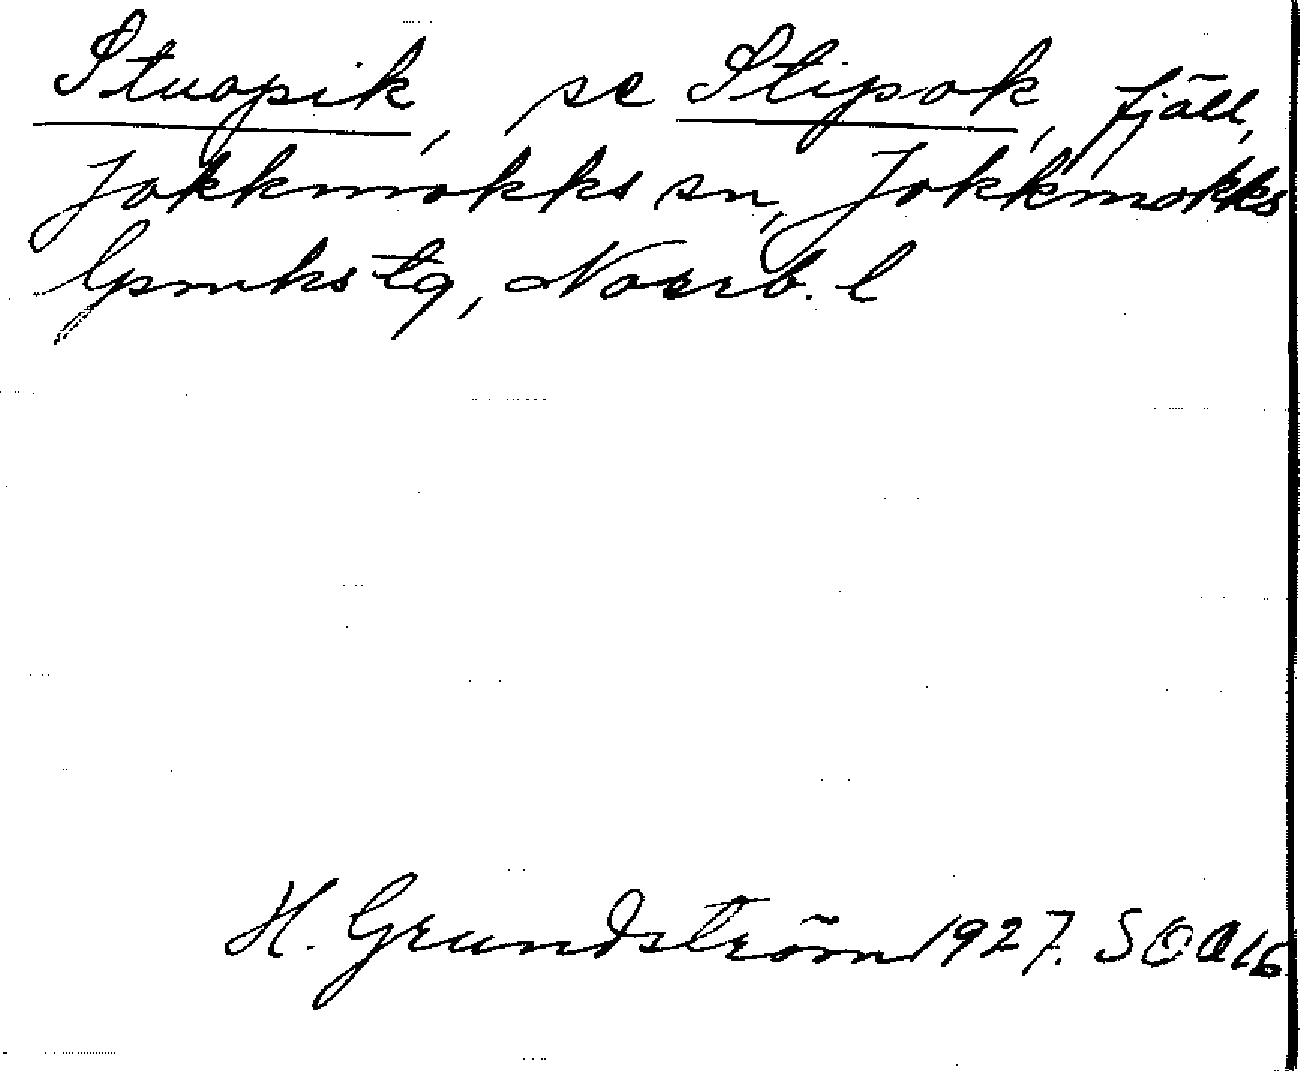 Stuopik, se Stipok, fjäll,
Jokkmokks sn, Jokkmokks
lpmks tg, Norrb. l
H. Grundström 1927. SOA 16